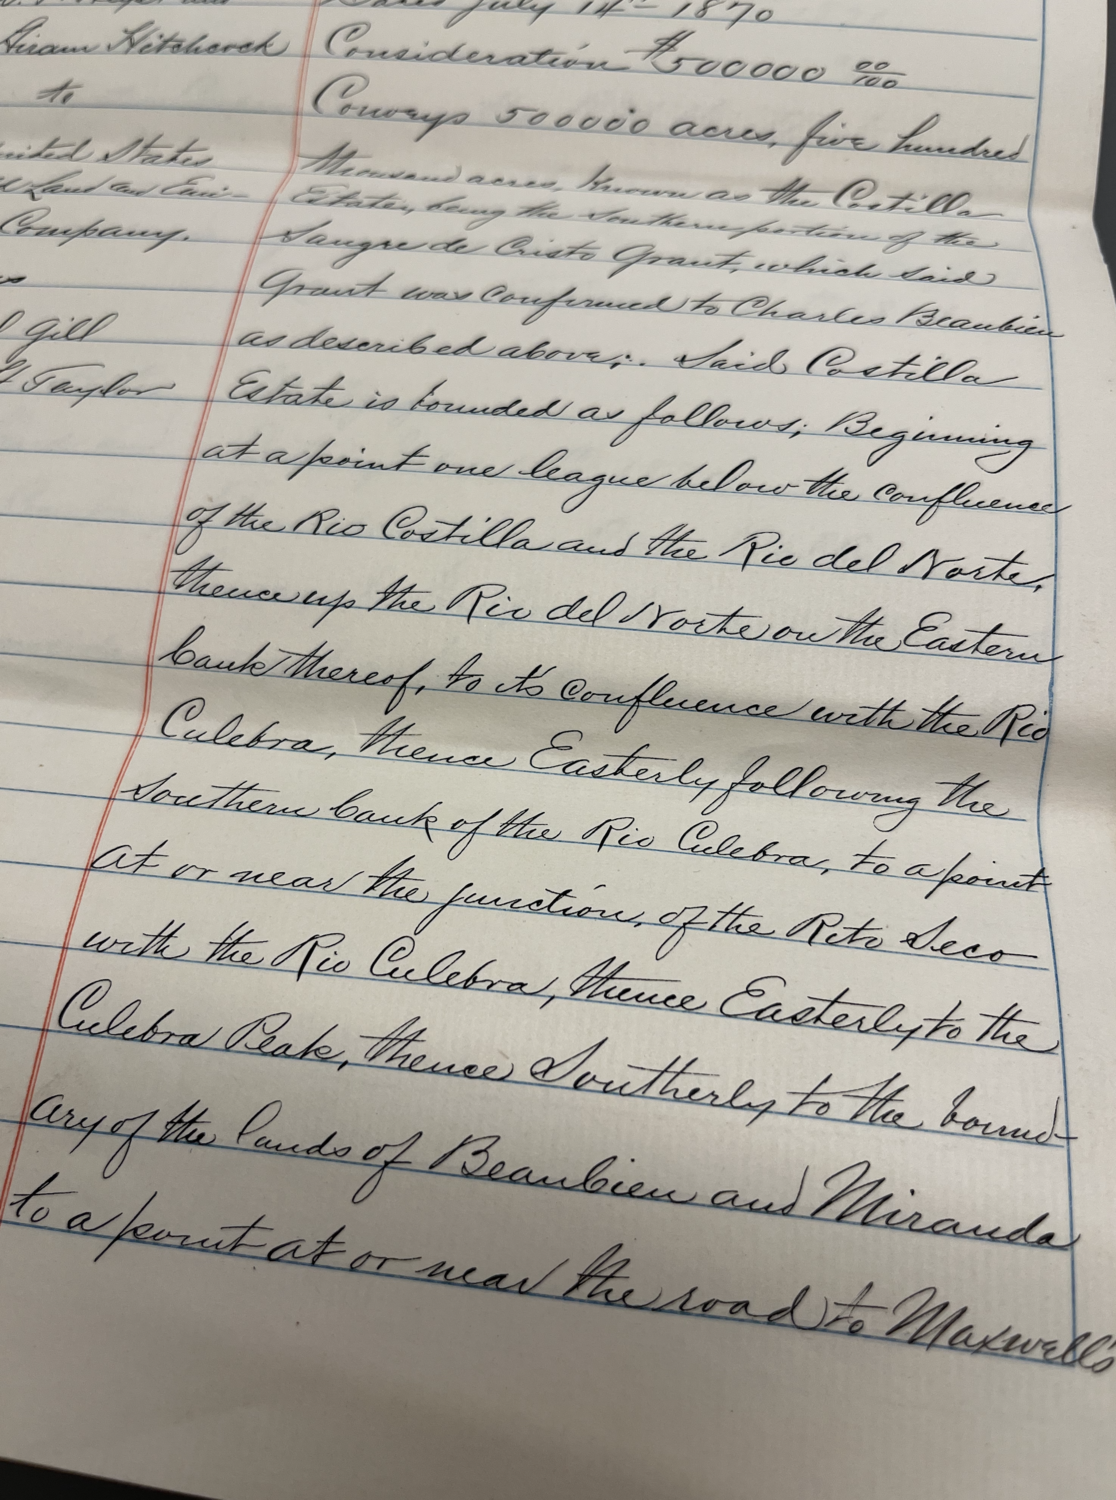 Dated July 14th 1870
Hiram Hitchcock
to
United States
Land and
Company.
Gill
Taylor
Consideration $500000 00/100
Conveys 500000 acres, five hundred
thousand acres, Known as the Costilla
Estate, being the Southern portion of the
Sangre de Cristo Grant, which said
Grant was confirmed to Charles Beaubien
as described above;. Said Costilla
Estate is bounded as follows; Beginning
at a point one league below the confluence
of the Rio Costilla and the Rio del Norte,
thence up the Rio del Norte on the Eastern
bank thereof, to its confluence with the Rio
Culebra, thence Easterly following the
Southern bank of the Rio Culebra, to a point
at or near the junction, of the Rito Seco
with the Rio Culebra, thence Easterly to the
Culebra Peak, thence Southerly to the bound-
ary of the lands of Beaubien and Miranda
to a point at or near the road to Maxwell's